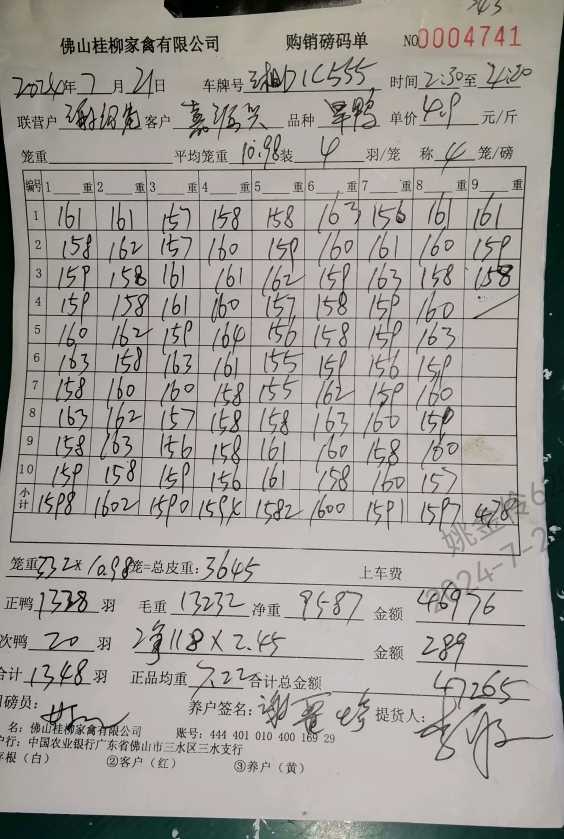 佛山桂柳家禽有限公司 购销磅码单 NO 0004741
2024年7月21日 车牌号 DIC555 时间2:30至4:20
联营户 客户 品种 旱鸭 单价4.9元/斤
笼重 平均笼重10.98装4羽/笼 称4笼/磅
编号 1 重 2 重 3 重 4 重 5 重 6 重 7 重 8 重 9 重
1 161 161 157 158 158 163 156 161 161
2 158 162 157 160 159 160 161 160 159
3 159 158 161 161 162 159 163 158 158
4 159 158 161 160 157 158 159 160
5 160 162 159 164 156 158 159 163
6 163 158 163 161 155 159 156 159
7 158 160 160 158 155 162 159 160
8 163 162 157 158 158 163 160 159
9 158 163 156 158 161 160 158 160
10 159 158 159 156 161 158 160 157
小计 1598 1602 1590 1582 1600 1591 1597 478
笼重332×10.98笼=总皮重:3645 上车费
正鸭1328羽 毛重13232净重9587 金额46976
次鸭20羽 净118×2.45 金额289
合计1348羽 正品均重7.22合计总金额47265
司磅员: 养户签名: 提货人:
名:佛山桂柳家禽有限公司 账号:444 401 010 400 169 29
户行:中国农业银行广东省佛山市三水区三水支行
存根(白) ②客户(红) ③养户(黄)